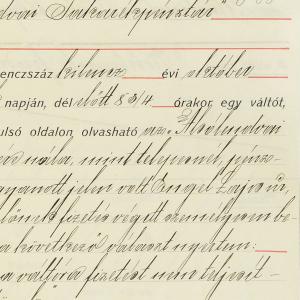 dvai Takarékpénztár
enczszáz kilencz évi október
napján, dél előtt 8 3/4 órakor egy váltót,
ulsó oldalon olvasható az "Alsólendvai
nála, mint telepesnél, pénz-
ugyanott jelen volt Engel Lajos úr,
fizetés végett személyesen be-
a következő választ nyertem:
a váltóra fizetést nem teljesít-